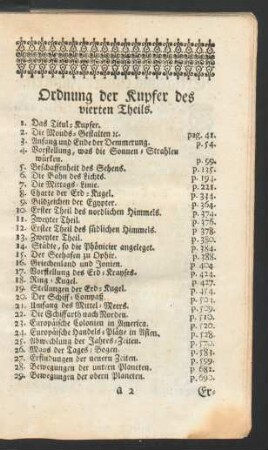 Ordnung der Kupfer des
vierten Theils.
1. Das Titul-Kupfer.
2. Die Monds-Gestalten ꝛc. pag. 41.
3. Anfang und Ende der Demmerung. p. 54.
4. Vorstellung, was die Sonnen-Strahlen
würken. p. 99.
5. Beschaffenheit des Sehens. p. 115.
6. Die Bahn des Lichts. p. 194.
7. Die Mittags-Linie. p. 221.
8. Charte der Erd-Kugel. p. 334.
9. Bildzeichen der Egypter. p. 364.
10. Erster Theil des nordlichen Himmels. p. 374.
11. Zweyter Theil. p. 376.
12. Erster Theil des südlichen Himmels. p. 378.
13. Zweyter Theil. p. 380.
14. Städte, so die Phönicier angeleget. p. 384.
15. Der Seehafen zu Ophir. p. 388.
16. Griechenland und Jonien. p. 404.
17. Vorstellung des Erd-Krayses. p. 424.
18. Ring-Kugel. p.
19. Stellungen der Erd-Kugel. p. 454.
20. Der Schiff-Compaß. p. 501.
21. Umfang des Mittel-Meers. p. 509.
22. Die Schiffarth nach Norden. p. 510.
23. Europäische Colonien in America. p. 520.
24. Europäische Handels-Plätz in Asien. p. 528.
25. Abwechlung der Jahrs-Zeiten. p.
26. Maas der Tages-Bogen. p. 583.
27. Erfindungen der neuern Zeiten. p. 599.
28. Bewegungen der untern Planeten. p. 682.
29. Bewegungen der obern Planeten. p. 690.
ü 2 Er-